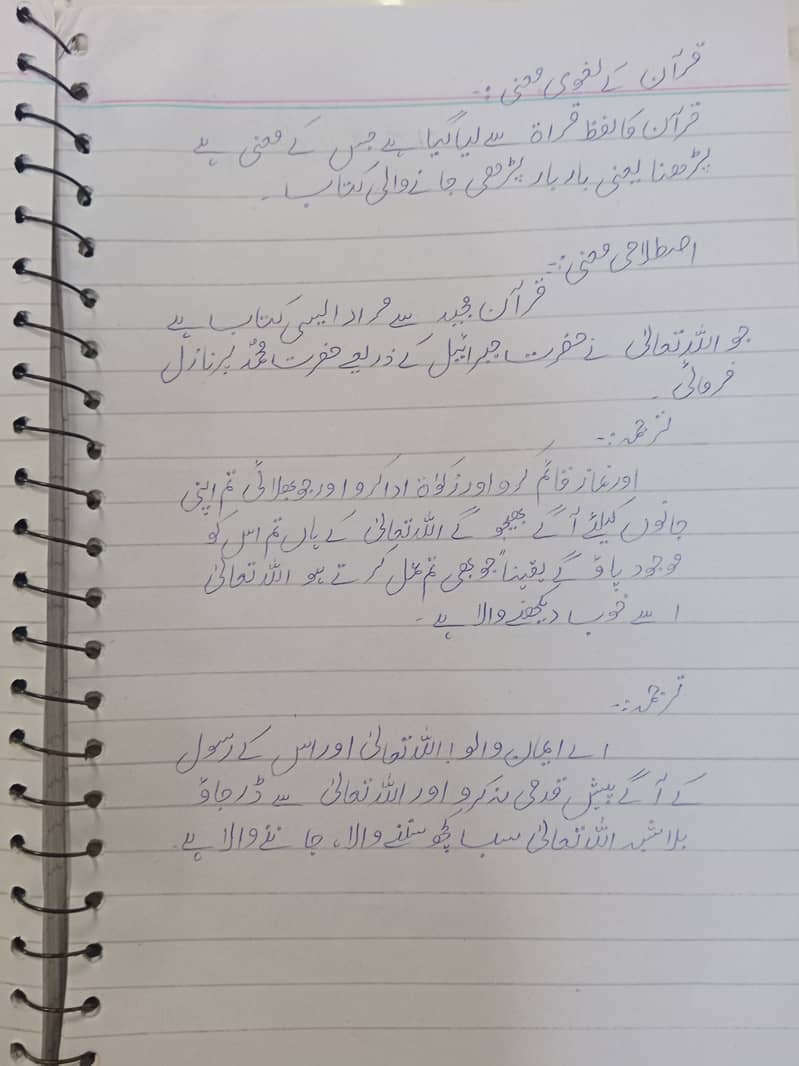 قرآن کے لغوی معنی :-
قرآن کا لفظ قراۃ سے لیا گیا ہے جس کے معنی ہے
پڑھنا یعنی بار بار پڑھی جانے والی کتاب ۔
اصطلاحی معنی :-
قرآن مجید سے مراد ایسی کتاب ہے
جو اللہ تعالیٰ نے حضرت جبرائیل کے ذریعے حضرت محمدؐ پر نازل
فرمائی ۔
ترجمہ :-
اور نماز قائم کرو اور زکوٰۃ ادا کرو اور جو بھلائی تم اپنی
جانوں کیلئے آگے بھیجو گے اللہ تعالیٰ کے ہاں تم اس کو
موجود پاؤ گے یقیناً جو بھی تم عمل کرتے ہو اللہ تعالیٰ
اسے خوب دیکھنے والا ہے ۔
ترجمہ :-
اے ایمان والو ! اللہ تعالیٰ اور اس کے رسول
کے آگے پیش قدمی نہ کرو اور اللہ تعالیٰ سے ڈر جاؤ
بلاشبہ اللہ تعالیٰ سب کچھ سننے والا ، جاننے والا ہے ۔